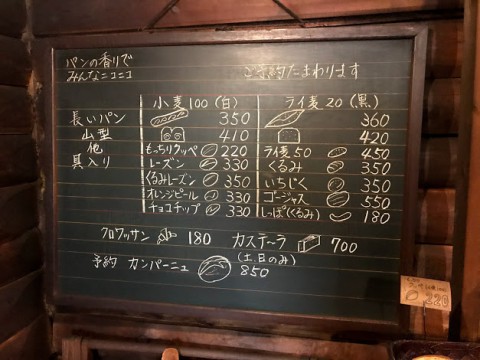 パンの香りで
みんなニコニコ
ご予約たまわります
小麦100(白) ライ麦20(黒)
長いパン 350 360
山型 410 420
他 もっちりクッペ 220 ライ麦50 450
具入り レーズン 330 くるみ 350
くるみレーズン 350 いちじく 350
オレンジピール 330 ゴージャス 550
チョコチップ 330 しっぽ(くるみ) 180
クロワッサン 180 カステーラ 700
予約 カンパーニュ (土、日のみ) 850
320